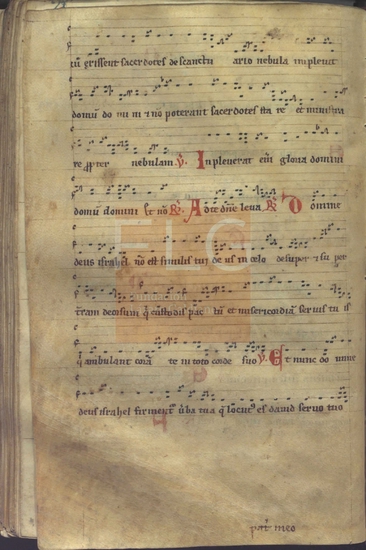 tū egrissent sacerdotes de sanctu ario nebula impleuit
domū do mi ni ⁊ nō poterant sacerdotes sta re et ministra
re propter nebulam ℣. Inpleuerat eni gloria domini
domū domini Et nō ℟. Ad te dn̄e leua ℟. Domine
deus israhel nō est similis tui de us in celo desuper ⁊ su per
tram deorsum q̇ custodis pac tū et misericordiā seruis tu is
q̇ ambulant corā te in toto corde suo ℣. Et nunc dn̄e
deus israhel firment uba tua q̇ locut9 es dauid seruo tuo
meo